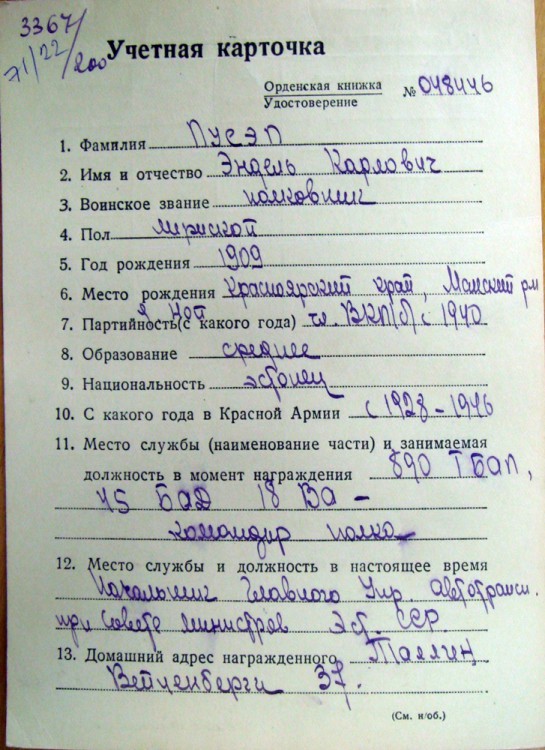 3367/
71/22/200
Учетная карточка
Орденская книжка
Удостоверение № 048446
1. Фамилия Пусэп
2. Имя и отчество Эндель Карлович
3. Воинское звание полковник
4. Пол мужской
5. Год рождения 1909
6. Место рождения Красноярский край, Манский р-н
7. Партийность (с какого года) чл. ВКП(б) с 1940
8. Образование среднее
9. Национальность эстонец
10. С какого года в Красной Армии с 1928-1946
11. Место службы (наименование части) и занимаемая
должность в момент награждения 890 ТБАП,
45 БАД 18 ВА -
командир полка
12. Место службы и должность в настоящее время
Начальник Главного Упр. автотрансп.
при Совете министров Эст. ССР.
13. Домашний адрес награжденного Таллин,
Вейценберги 37.
(См. н/об.)